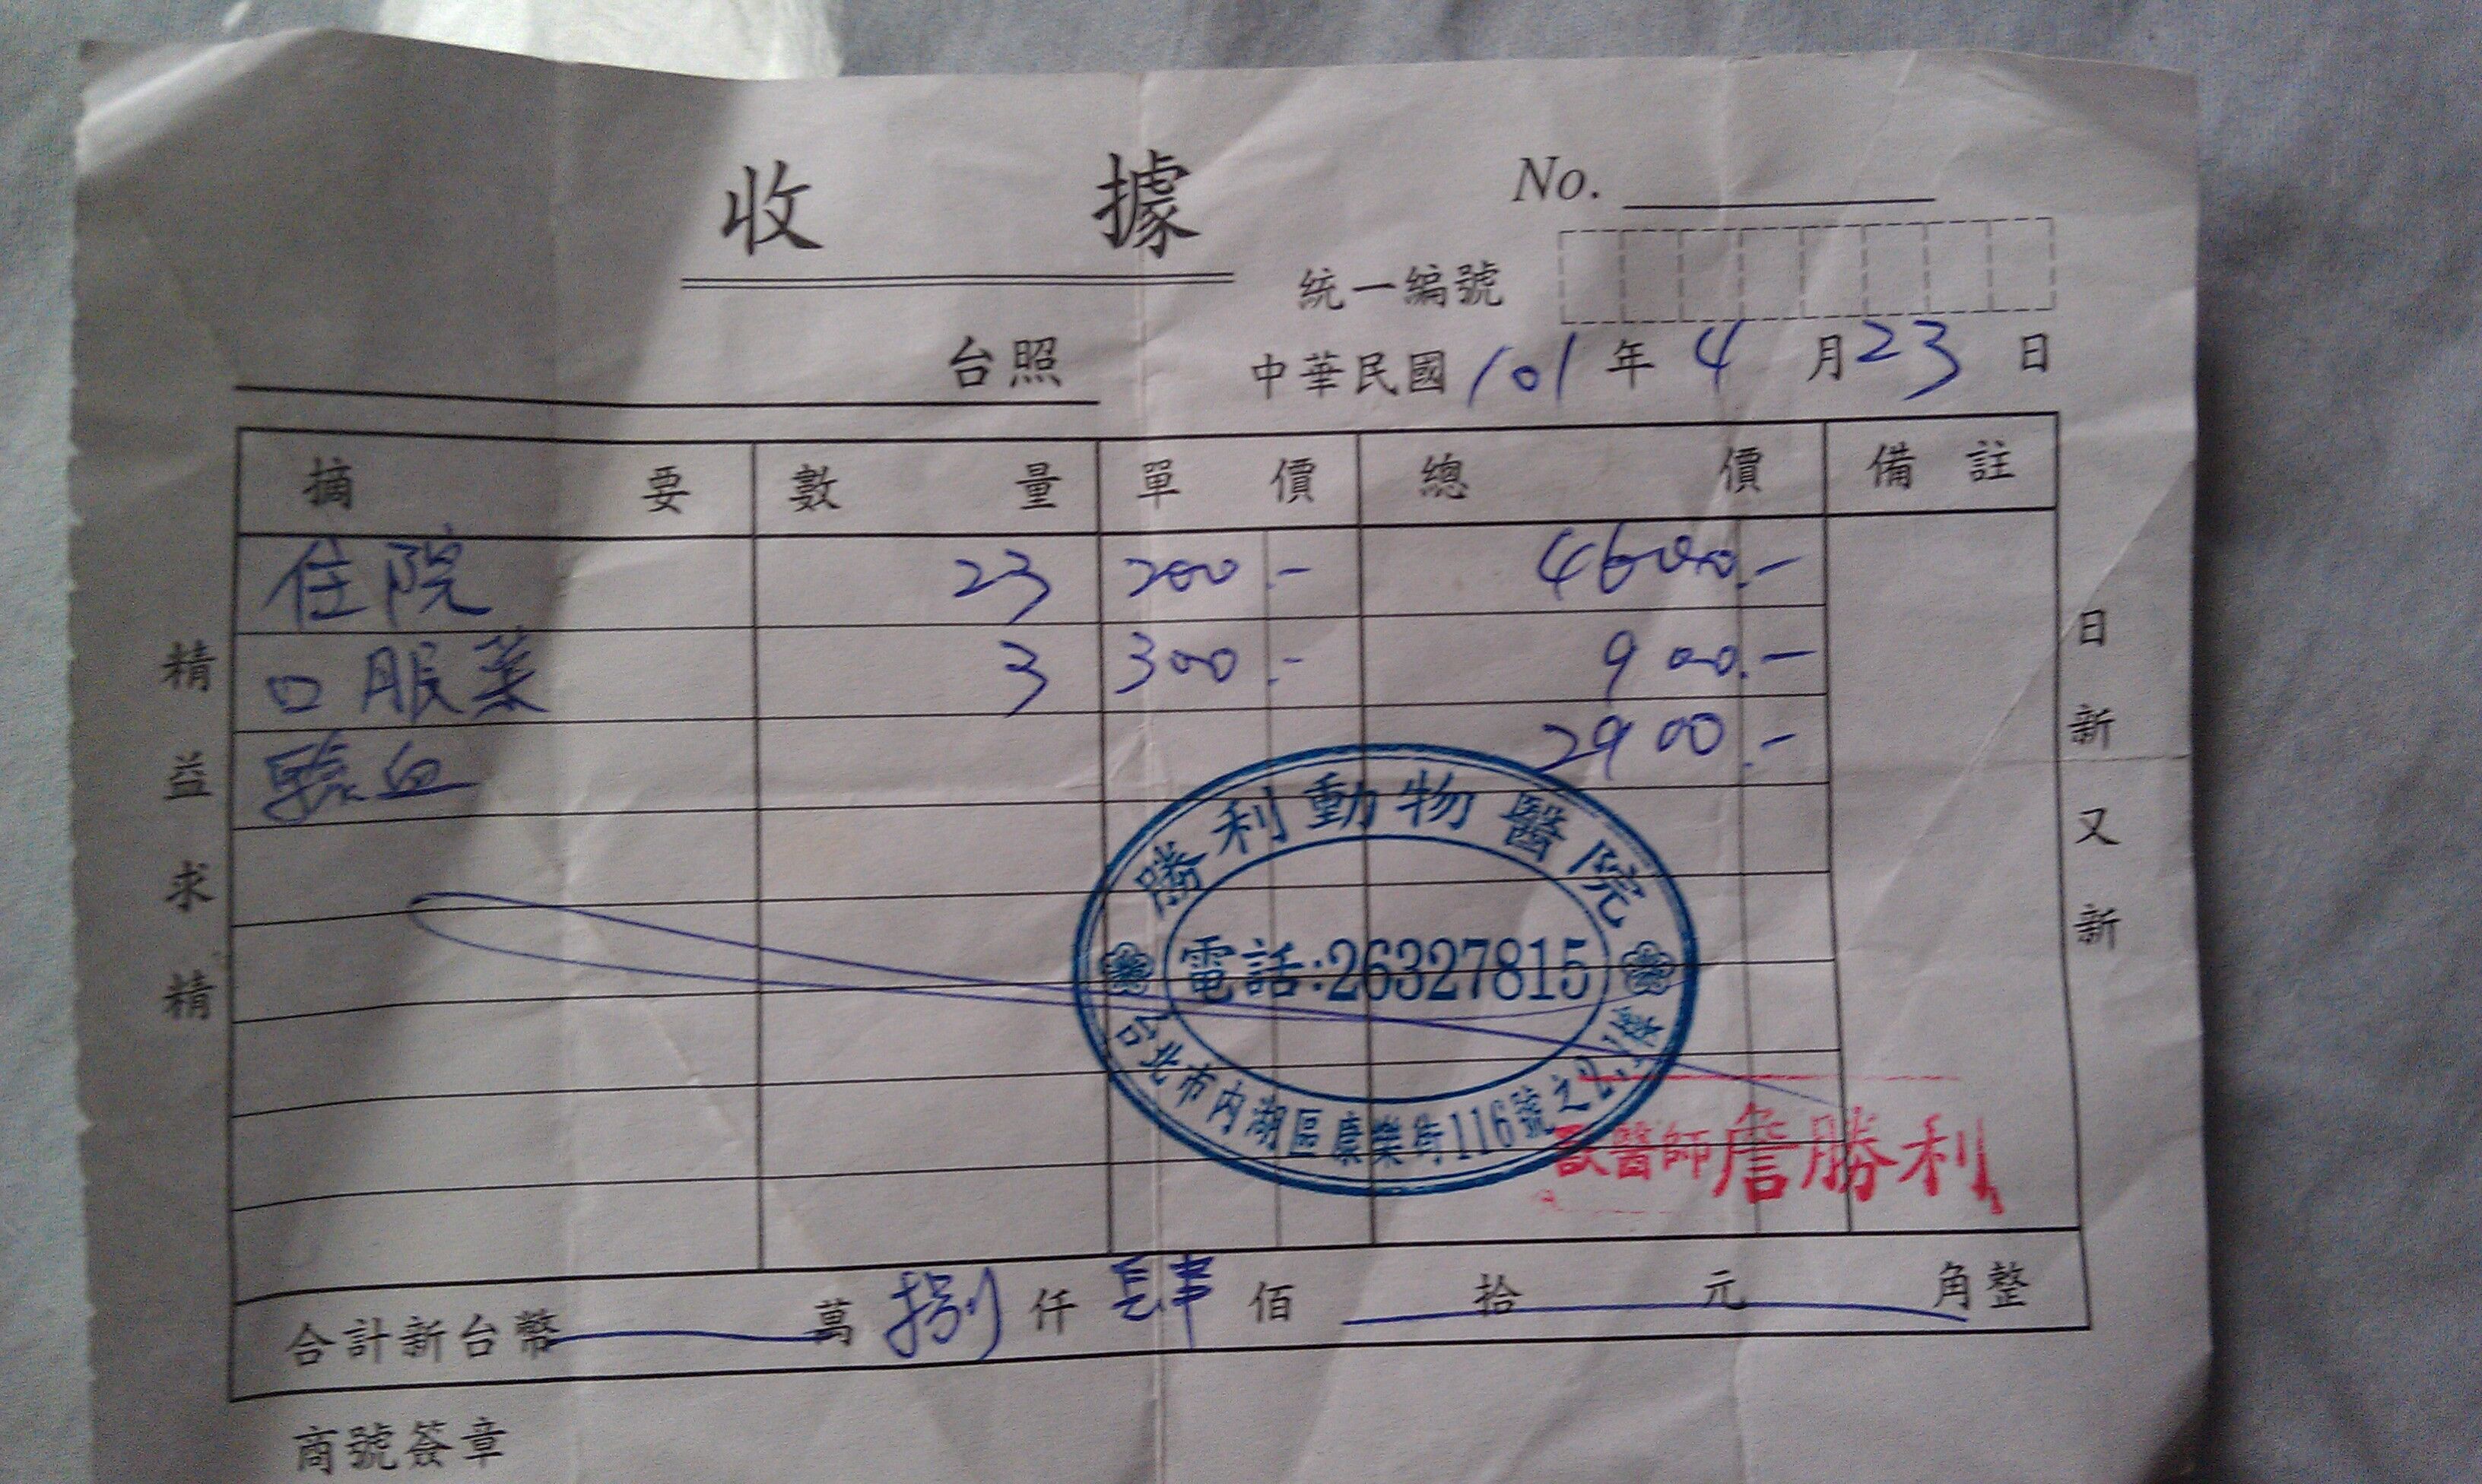 收據
No.
統一編號
台照
中華民國101年4月23日
摘要 數量 單價 總價 備註
住院 23 200.- 4600.-
口服药 3 300.- 900.-
驗血 2900.-
精益求精
日新又新
勝利動物醫院
電話:26327815
台北市內湖區康樂街116號之2,1樓
獸醫師詹勝利
合計新台幣 萬捌仟肆佰 拾 元 角整
商號簽章